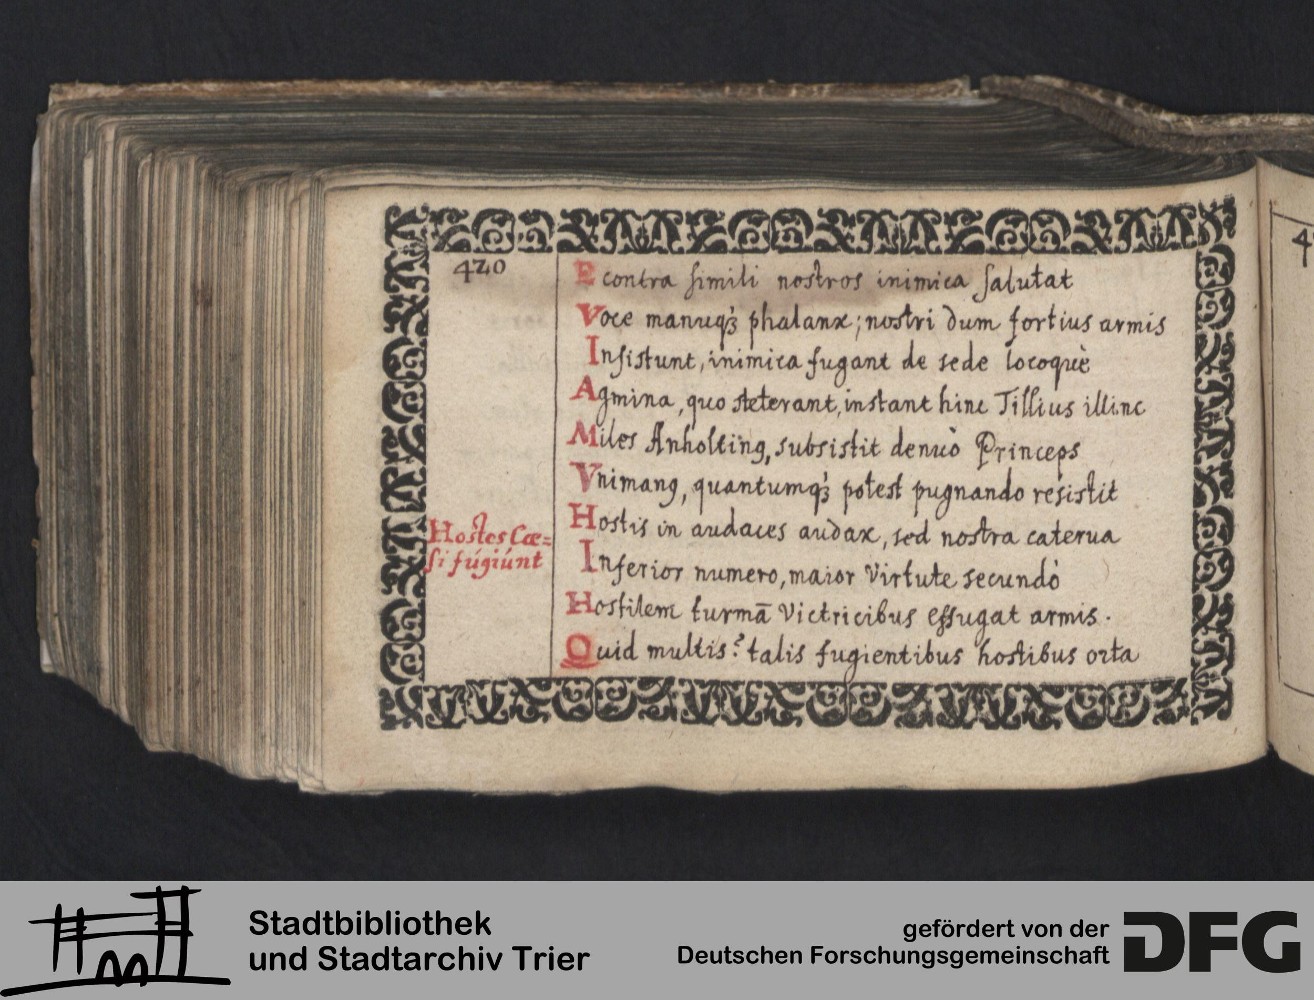 420
E contra simili nostros inimica salutat
Voce manuq₃ phalanx; nostri dum fortius armis
Insistunt, inimica fugant de sede locoquè
Agmina, quo steterant, instant hinc Tillius illinc
Miles Anholting, subsistit denuò Princeps
Vnimang, quantumq₃ potest pugnando resistit
Hostes Cæ=
si fúgiúnt
Hostis in audaces audax, sed nostra caterua
Inferior numero, maior virtute secundò
Hostilem turmā victricibus effugat armis.
Quid multis? talis fugientibus hostibus orta
4
Stadtbibliothek
und Stadtarchiv Trier
gefördert von der
Deutschen Forschungsgemeinschaft
DFG